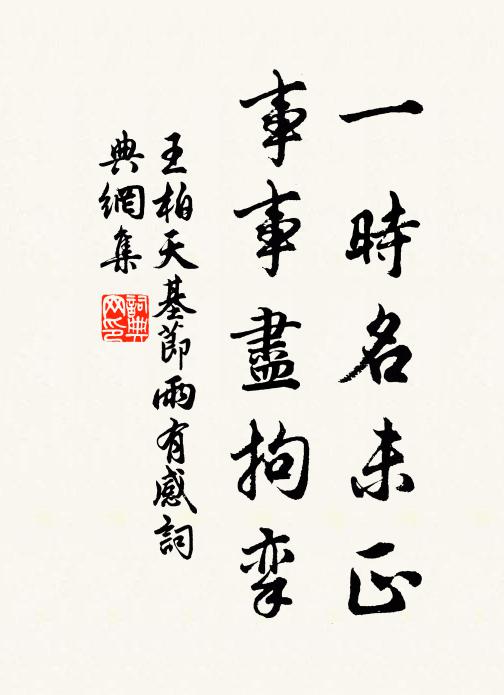 一時名未正
事事盡拘挛
王柏天基節雨有感詞
典網集
詞典
网印